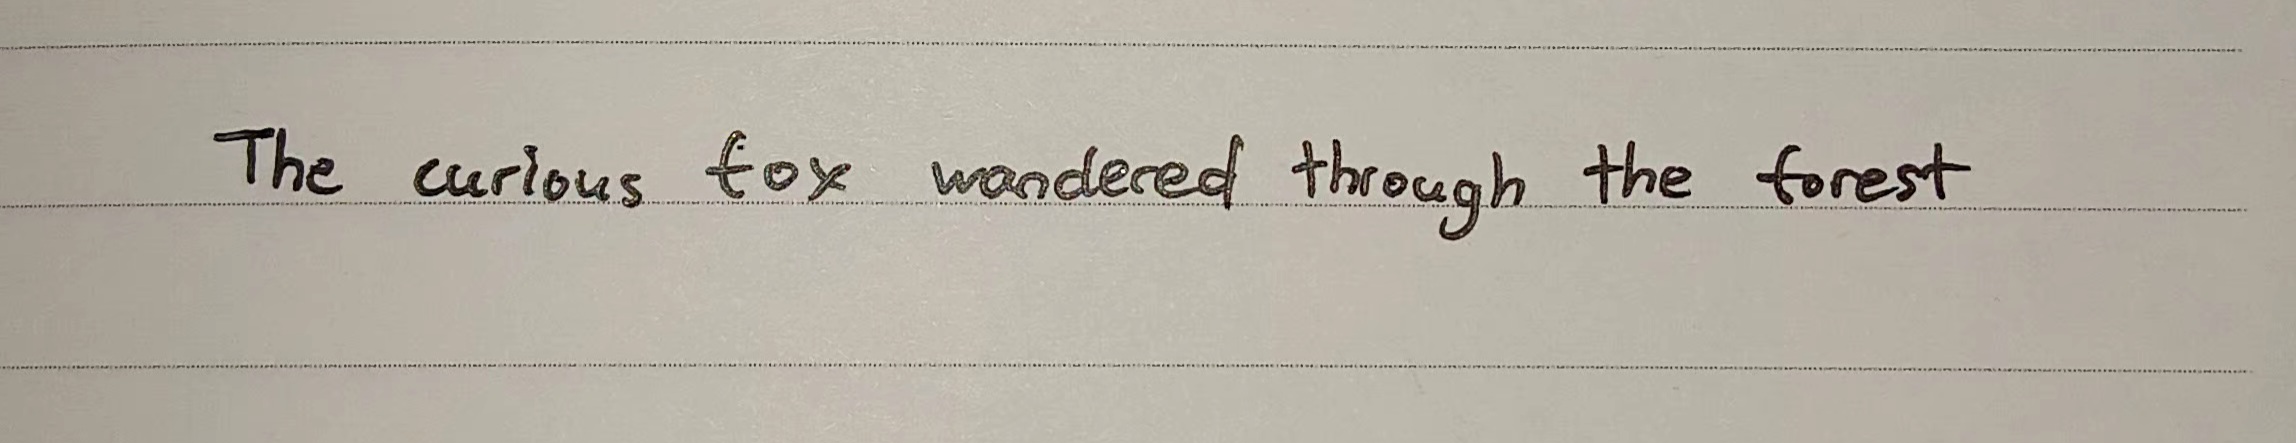 The curious fox wandered through the forest